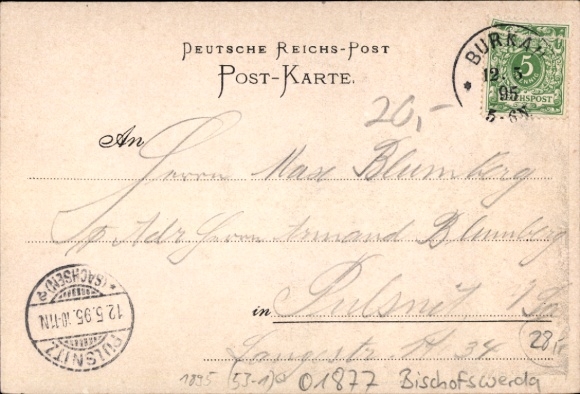 DEUTSCHE REICHS-POST
POST-KARTE.
BURKAU
12. 5
95
5-6N
5
PFENNIG
REICHSPOST
20,-
An
Herrn Max Blumberg
Adr Herrn Armand Blumberg
in Pulsnitz
Langestr. N. 34
PULSNITZ
12.5.95.10-11N.
* (SACHSEN) *
28,-
1895 (53-1) 01877 Bischofswerda